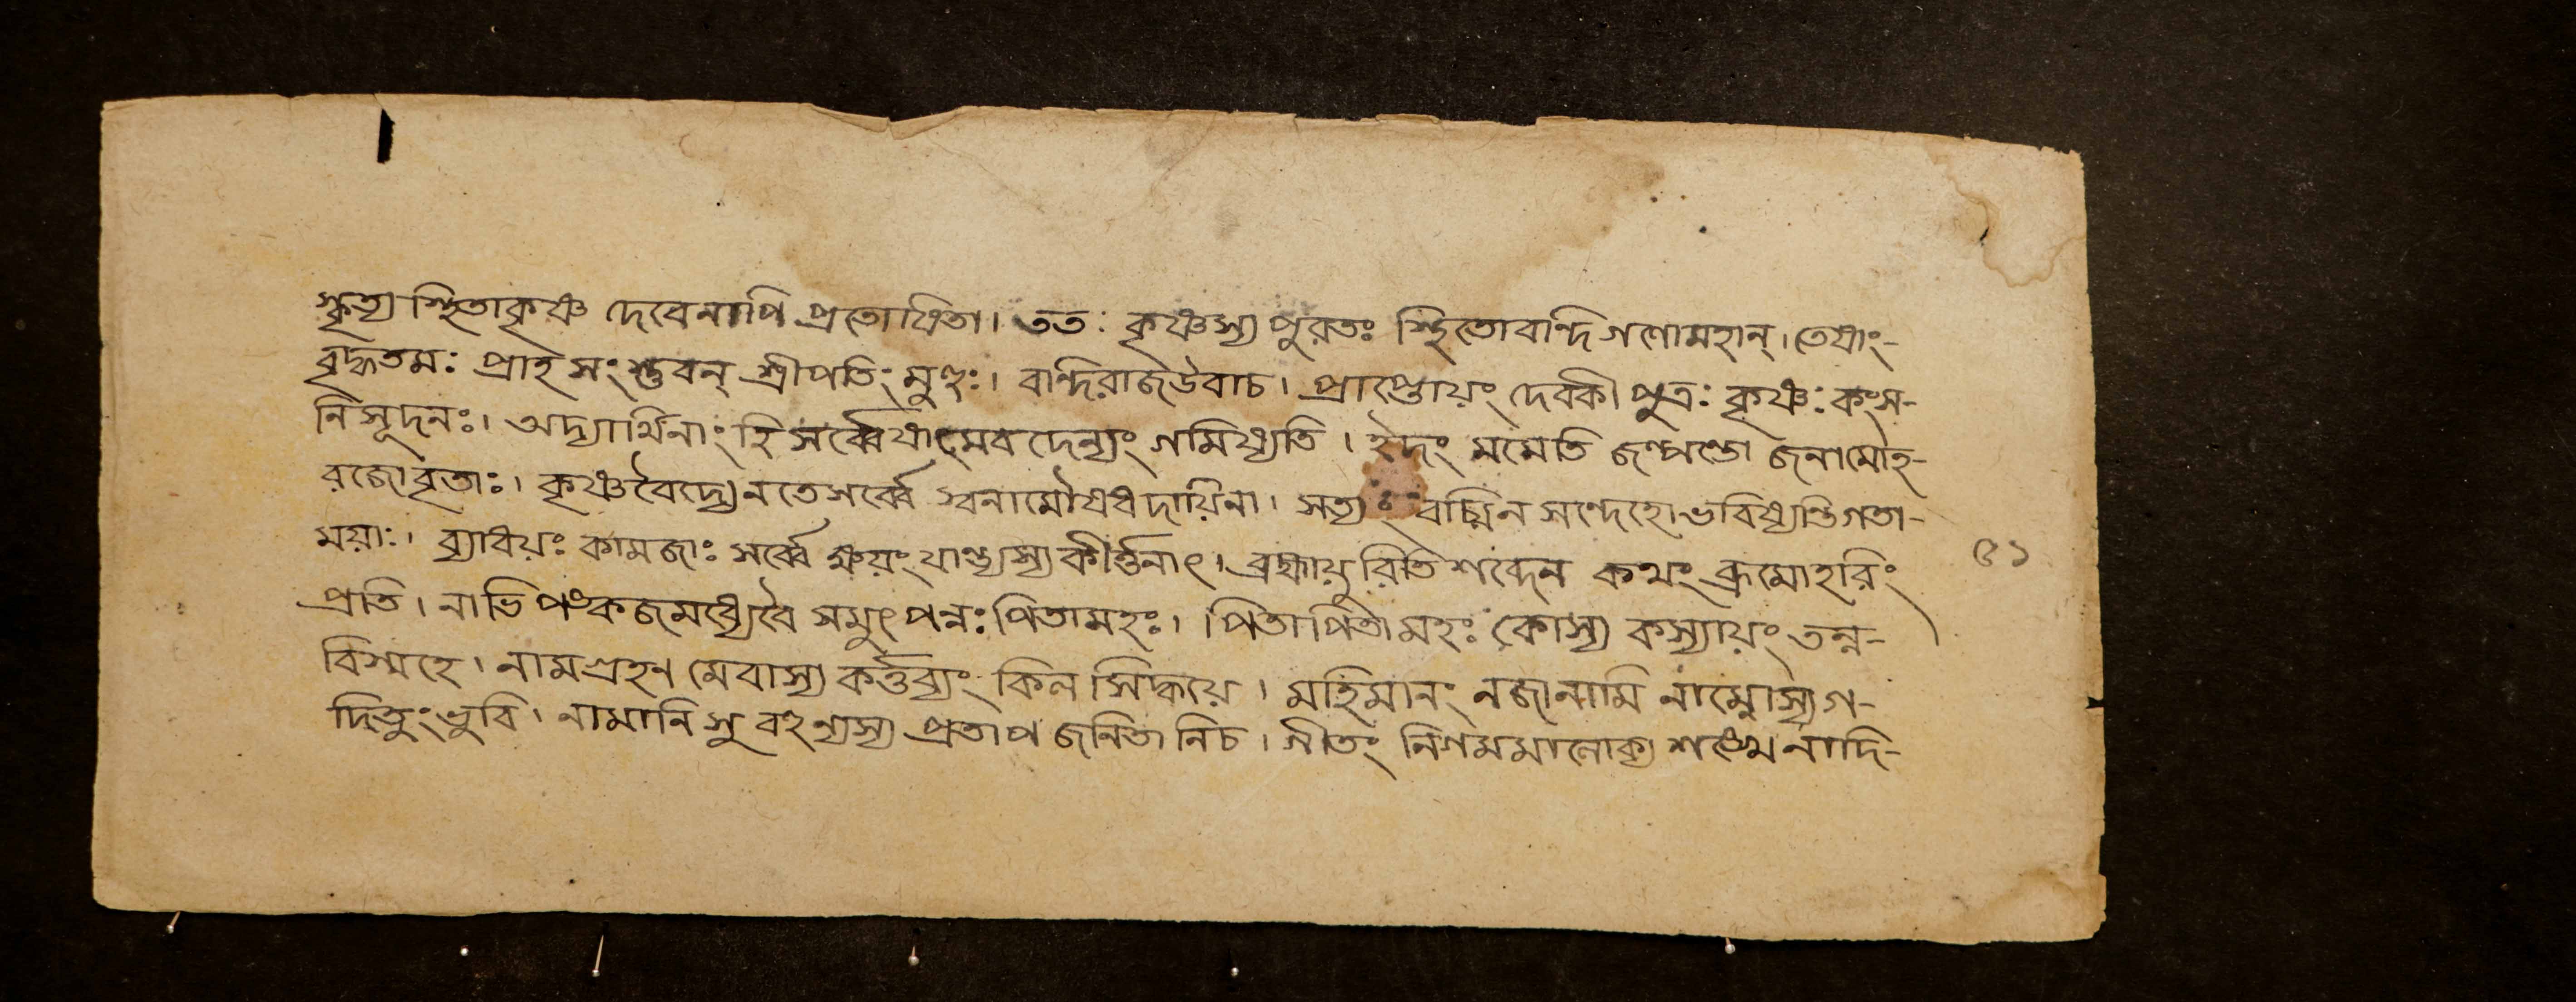 স্কৃত্য স্থিতাকৃষ্ণ দেবেনাপি প্রতোষিতা। ততঃ কৃষ্ণস্য পুরতঃ স্থিতোবান্দি গণোমহান্। তেষাং-
বৃদ্ধতমঃ প্রাহ সংস্তুবন্ শ্রীপতিং মুহুঃ। বান্দিরাজউবাচ। প্রাপ্তোয়ং দেবকী পুত্রঃ কৃষ্ণঃ কংস-
নিসূদনঃ। অদ্যার্থিনাং হি সর্ব্বেষামেব দেন্যং গমিষ্যতি। ইদং মমেতি জল্পন্তো জনামোহ-
রজোবৃতাঃ। কৃষ্ণবৈদ্যেনতেসর্ব্বে স্বনামৌষধদায়িনা। সত্যং বচ্মিন সন্দেহোভবিষ্যন্তিগতা-
ময়াঃ। ব্যাধয়ঃ কামজাঃ সর্ব্বে ক্ষয়ং যান্ত্যস্য কীর্ত্তনাৎ। ব্রহ্মায়ু রিতি শব্দেন কথং ব্রূমোহরিং
প্রতি। নাভি পঙ্কজমধ্যেবৈ সমুৎপন্নঃ পিতামহঃ। পিতাপিতামহঃ কোস্য কস্যায়ং তন্ন-
বিদ্মহে। নামগ্রহণ মেবাস্য কর্ত্তব্যং কিল সিদ্ধয়ে। মহিমানং নজানামি নাম্নোস্যগ-
দিতুংভুবি। নামানি সু বহূন্যস্য প্রতাপ জনিতা নিচ। গীতং নিগমমালোক্য শঙ্খেনাদি-
৫১